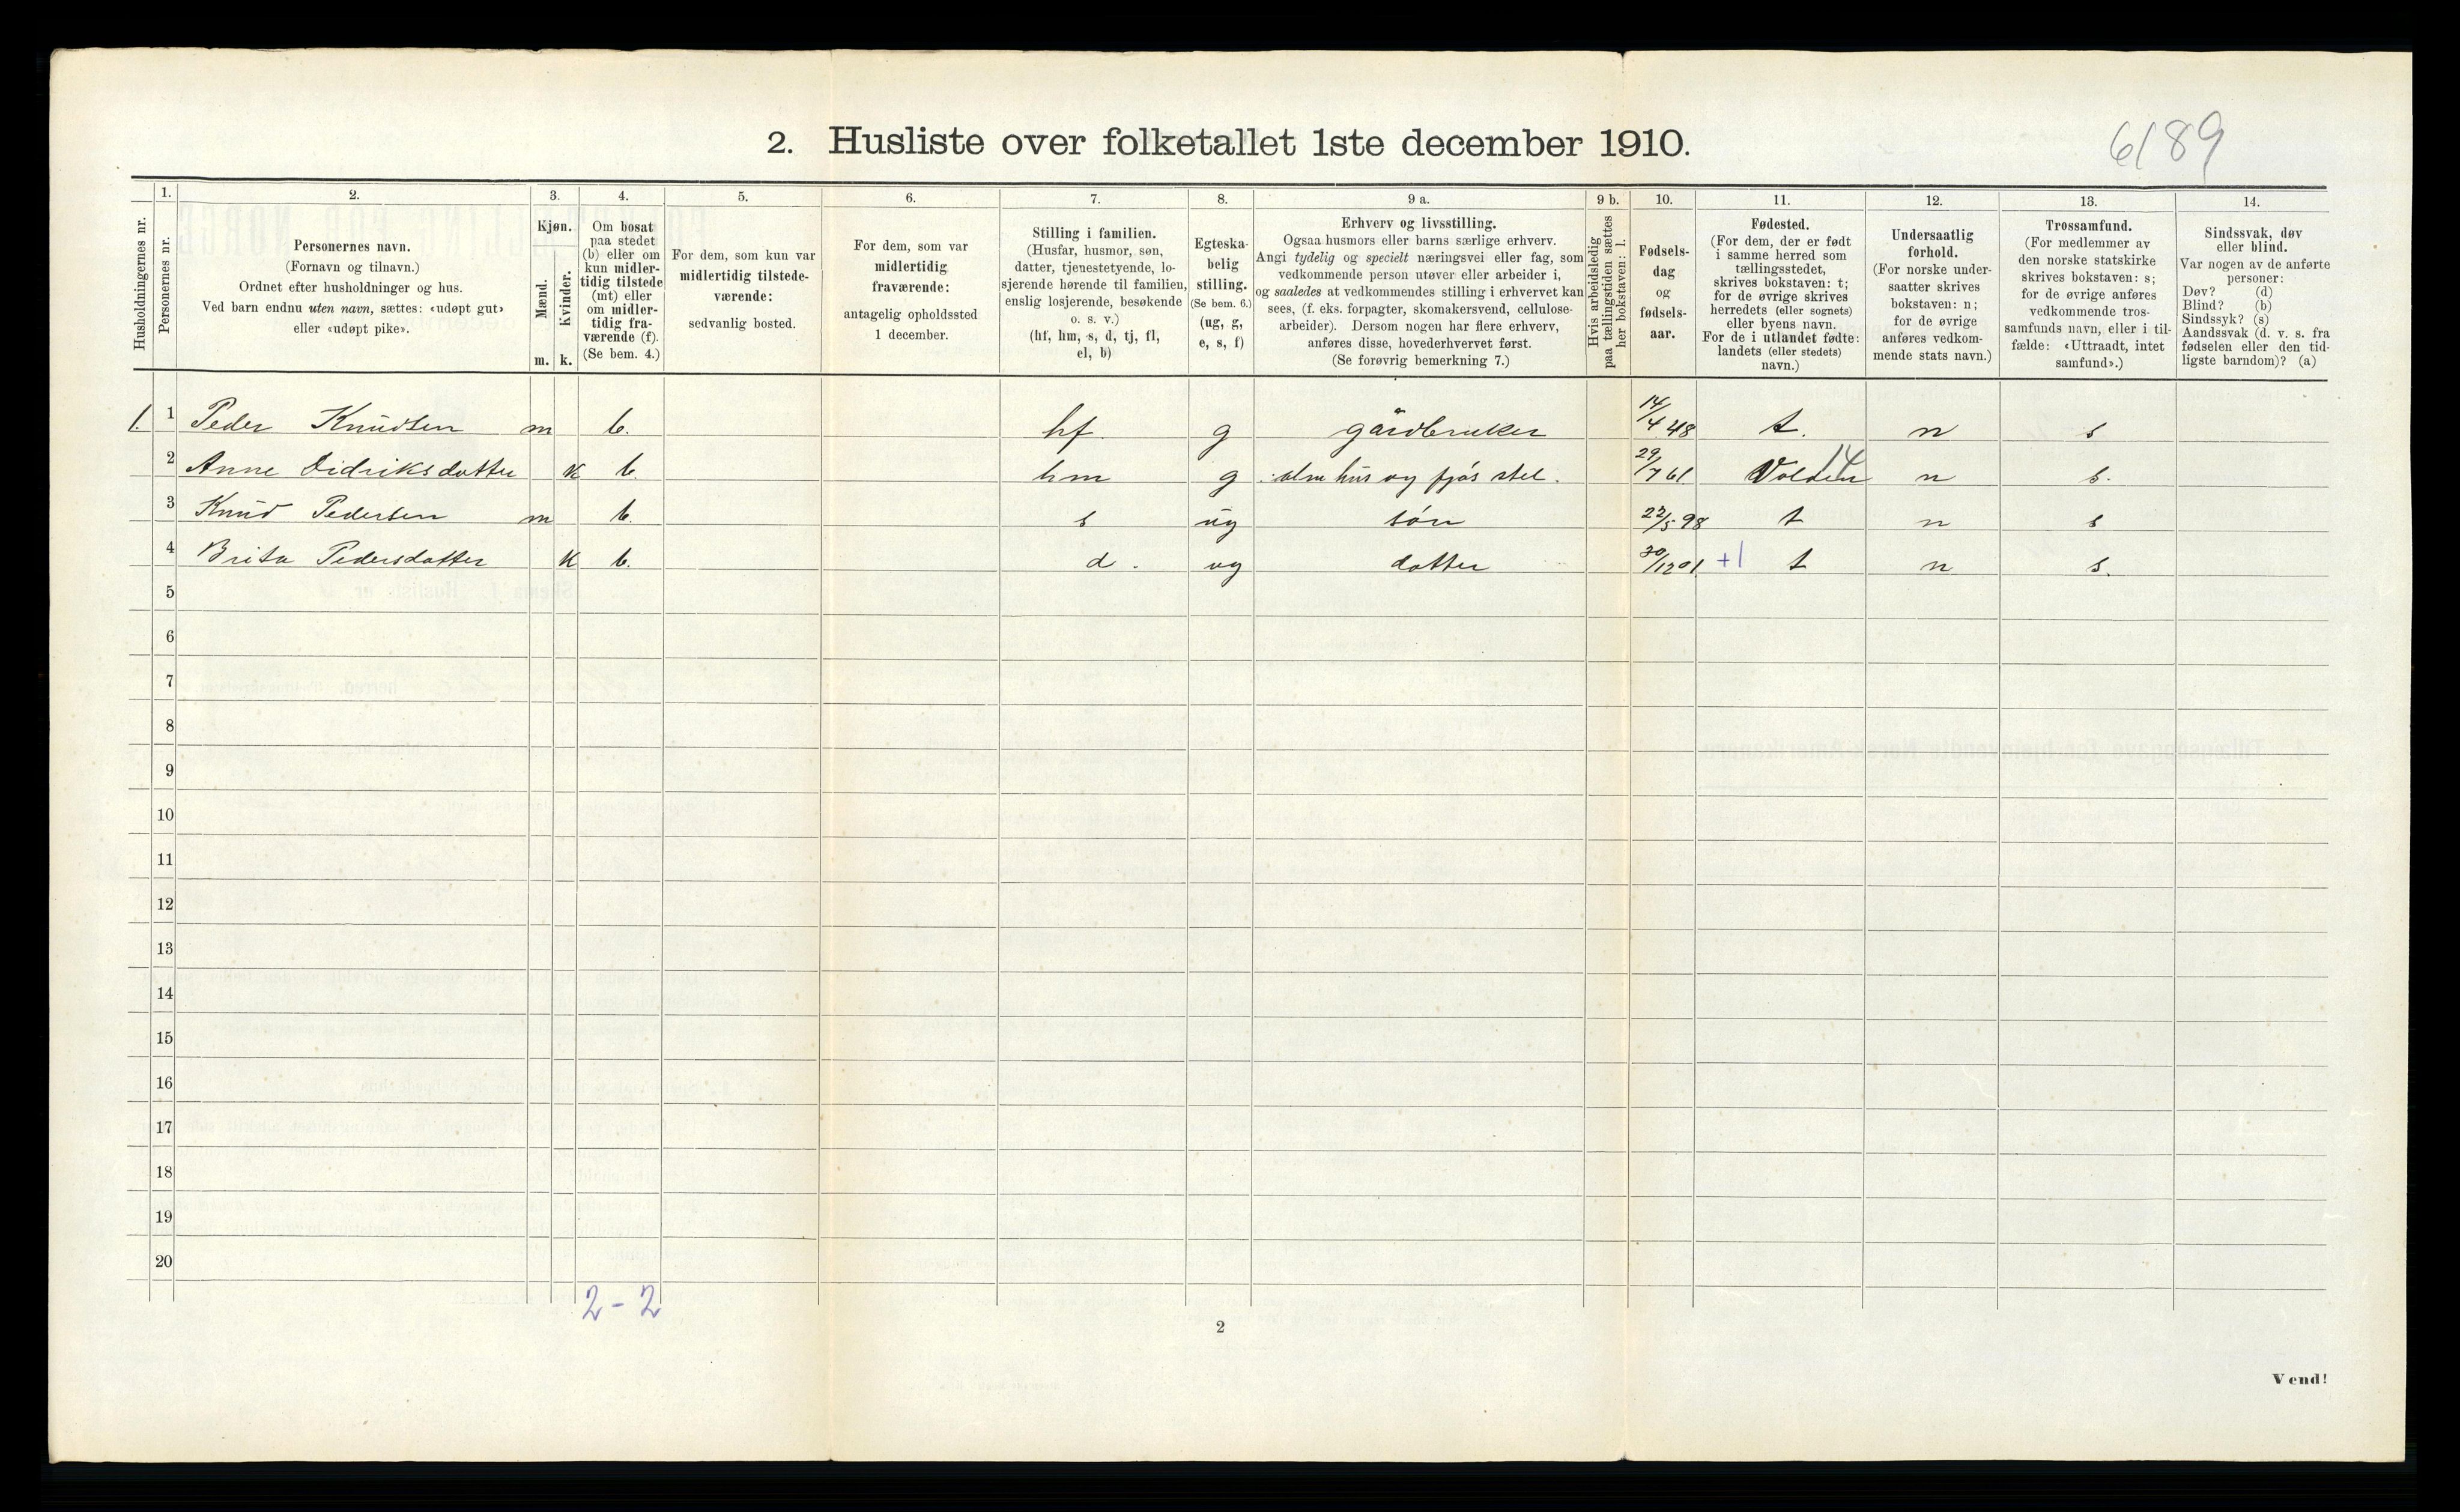 2. Husliste over folketallet 1ste december 1910.
6189
Husholdningernes nr.
1.
Personernes nr.
2.
Personernes navn.
(Fornavn og tilnavn.)
Ordnet efter husholdninger og hus.
Ved barn endnu uten navn, sættes: «udøpt gut»
eller «udøpt pike».
3.
Kjøn.
Mænd.
Kvinder.
m. k.
4.
Om bosat
paa stedet
(b) eller om
kun midler-
tidig tilstede
(mt) eller
om midler-
tidig fra-
værende (f).
(Se bem. 4.)
5.
For dem, som kun var
midlertidig tilstede-
værende:
sedvanlig bosted.
6.
For dem, som var
midlertidig
fraværende:
antagelig opholdssted
1 december.
7.
Stilling i familien.
(Husfar, husmor, søn,
datter, tjenestetyende, lo-
sjerende hørende til familien,
enslig losjerende, besøkende
o. s. v.)
(hf, hm, s, d, tj, fl,
el, b)
8.
Egteska-
belig
stilling.
(Se bem. 6.)
(ug, g,
e, s, f)
9 a.
Erhverv og livsstilling.
Ogsaa husmors eller barns særlige erhverv.
Angi tydelig og specielt næringsvei eller fag, som
vedkommende person utøver eller arbeider i,
og saaledes at vedkommendes stilling i erhvervet kan
sees, (f. eks. forpagter, skomakersvend, cellulose-
arbeider). Dersom nogen har flere erhverv,
anføres disse, hovederhvervet først.
(Se forøvrig bemerkning 7.)
9 b.
Hvis arbeidsledig
paa tællingstiden sættes
her bokstaven: l.
10.
Fødsels-
dag
og
fødsels-
aar.
11.
Fødested.
(For dem, der er født
i samme herred som
tællingsstedet,
skrives bokstaven: t;
for de øvrige skrives
herredets (eller sognets)
eller byens navn.
For de i utlandet fødte:
landets (eller stedets)
navn.)
12.
Undersaatlig
forhold.
(For norske under-
saatter skrives
bokstaven: n;
for de øvrige
anføres vedkom-
mende stats navn.)
13.
Trossamfund.
(For medlemmer av
den norske statskirke
skrives bokstaven: s;
for de øvrige anføres
vedkommende tros-
samfunds navn, eller i til-
fælde: «Uttraadt, intet
samfund».)
14.
Sindssvak, døv
eller blind.
Var nogen av de anførte
personer:
Døv? (d)
Blind? (b)
Sindssyk? (s)
Aandssvak (d. v. s. fra
fødselen eller den tid-
ligste barndom)? (a)
1. 1 Peder Knudsen m b. hf. g gårdbruker 14/4 48 t. n s
2 Anne Didriksdatter k b. hm g alm hus og fjös stel. 29/7 61 Volden 14 n s.
3 Knud Pedersen m b. s ug sön 22/5 98 t n s
4 Brita Pedersdatter k b. d. ug datter 30/12 01 +1 t n s.
5
6
7
8
9
10
11
12
13
14
15
16
17
18
19
20
2-2
2
Vend!